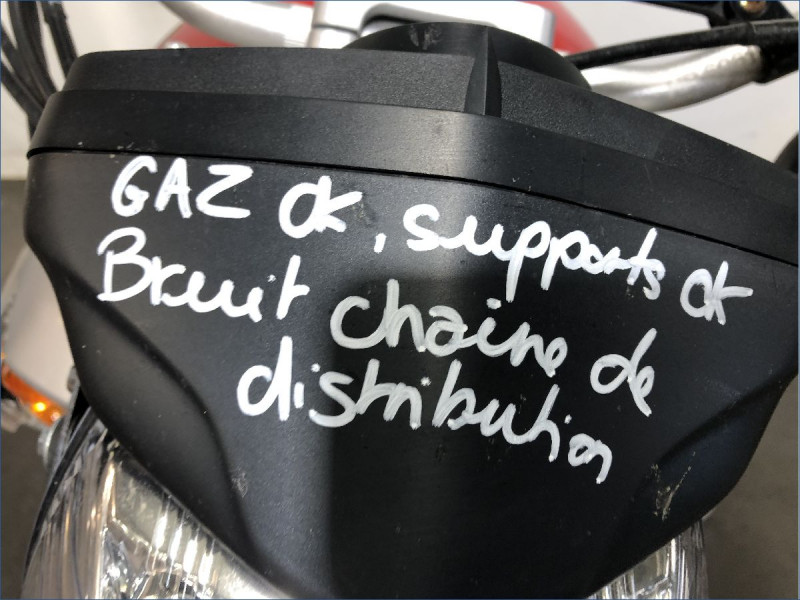 GAZ OK, supports OK
Bruit chaine de
distribution